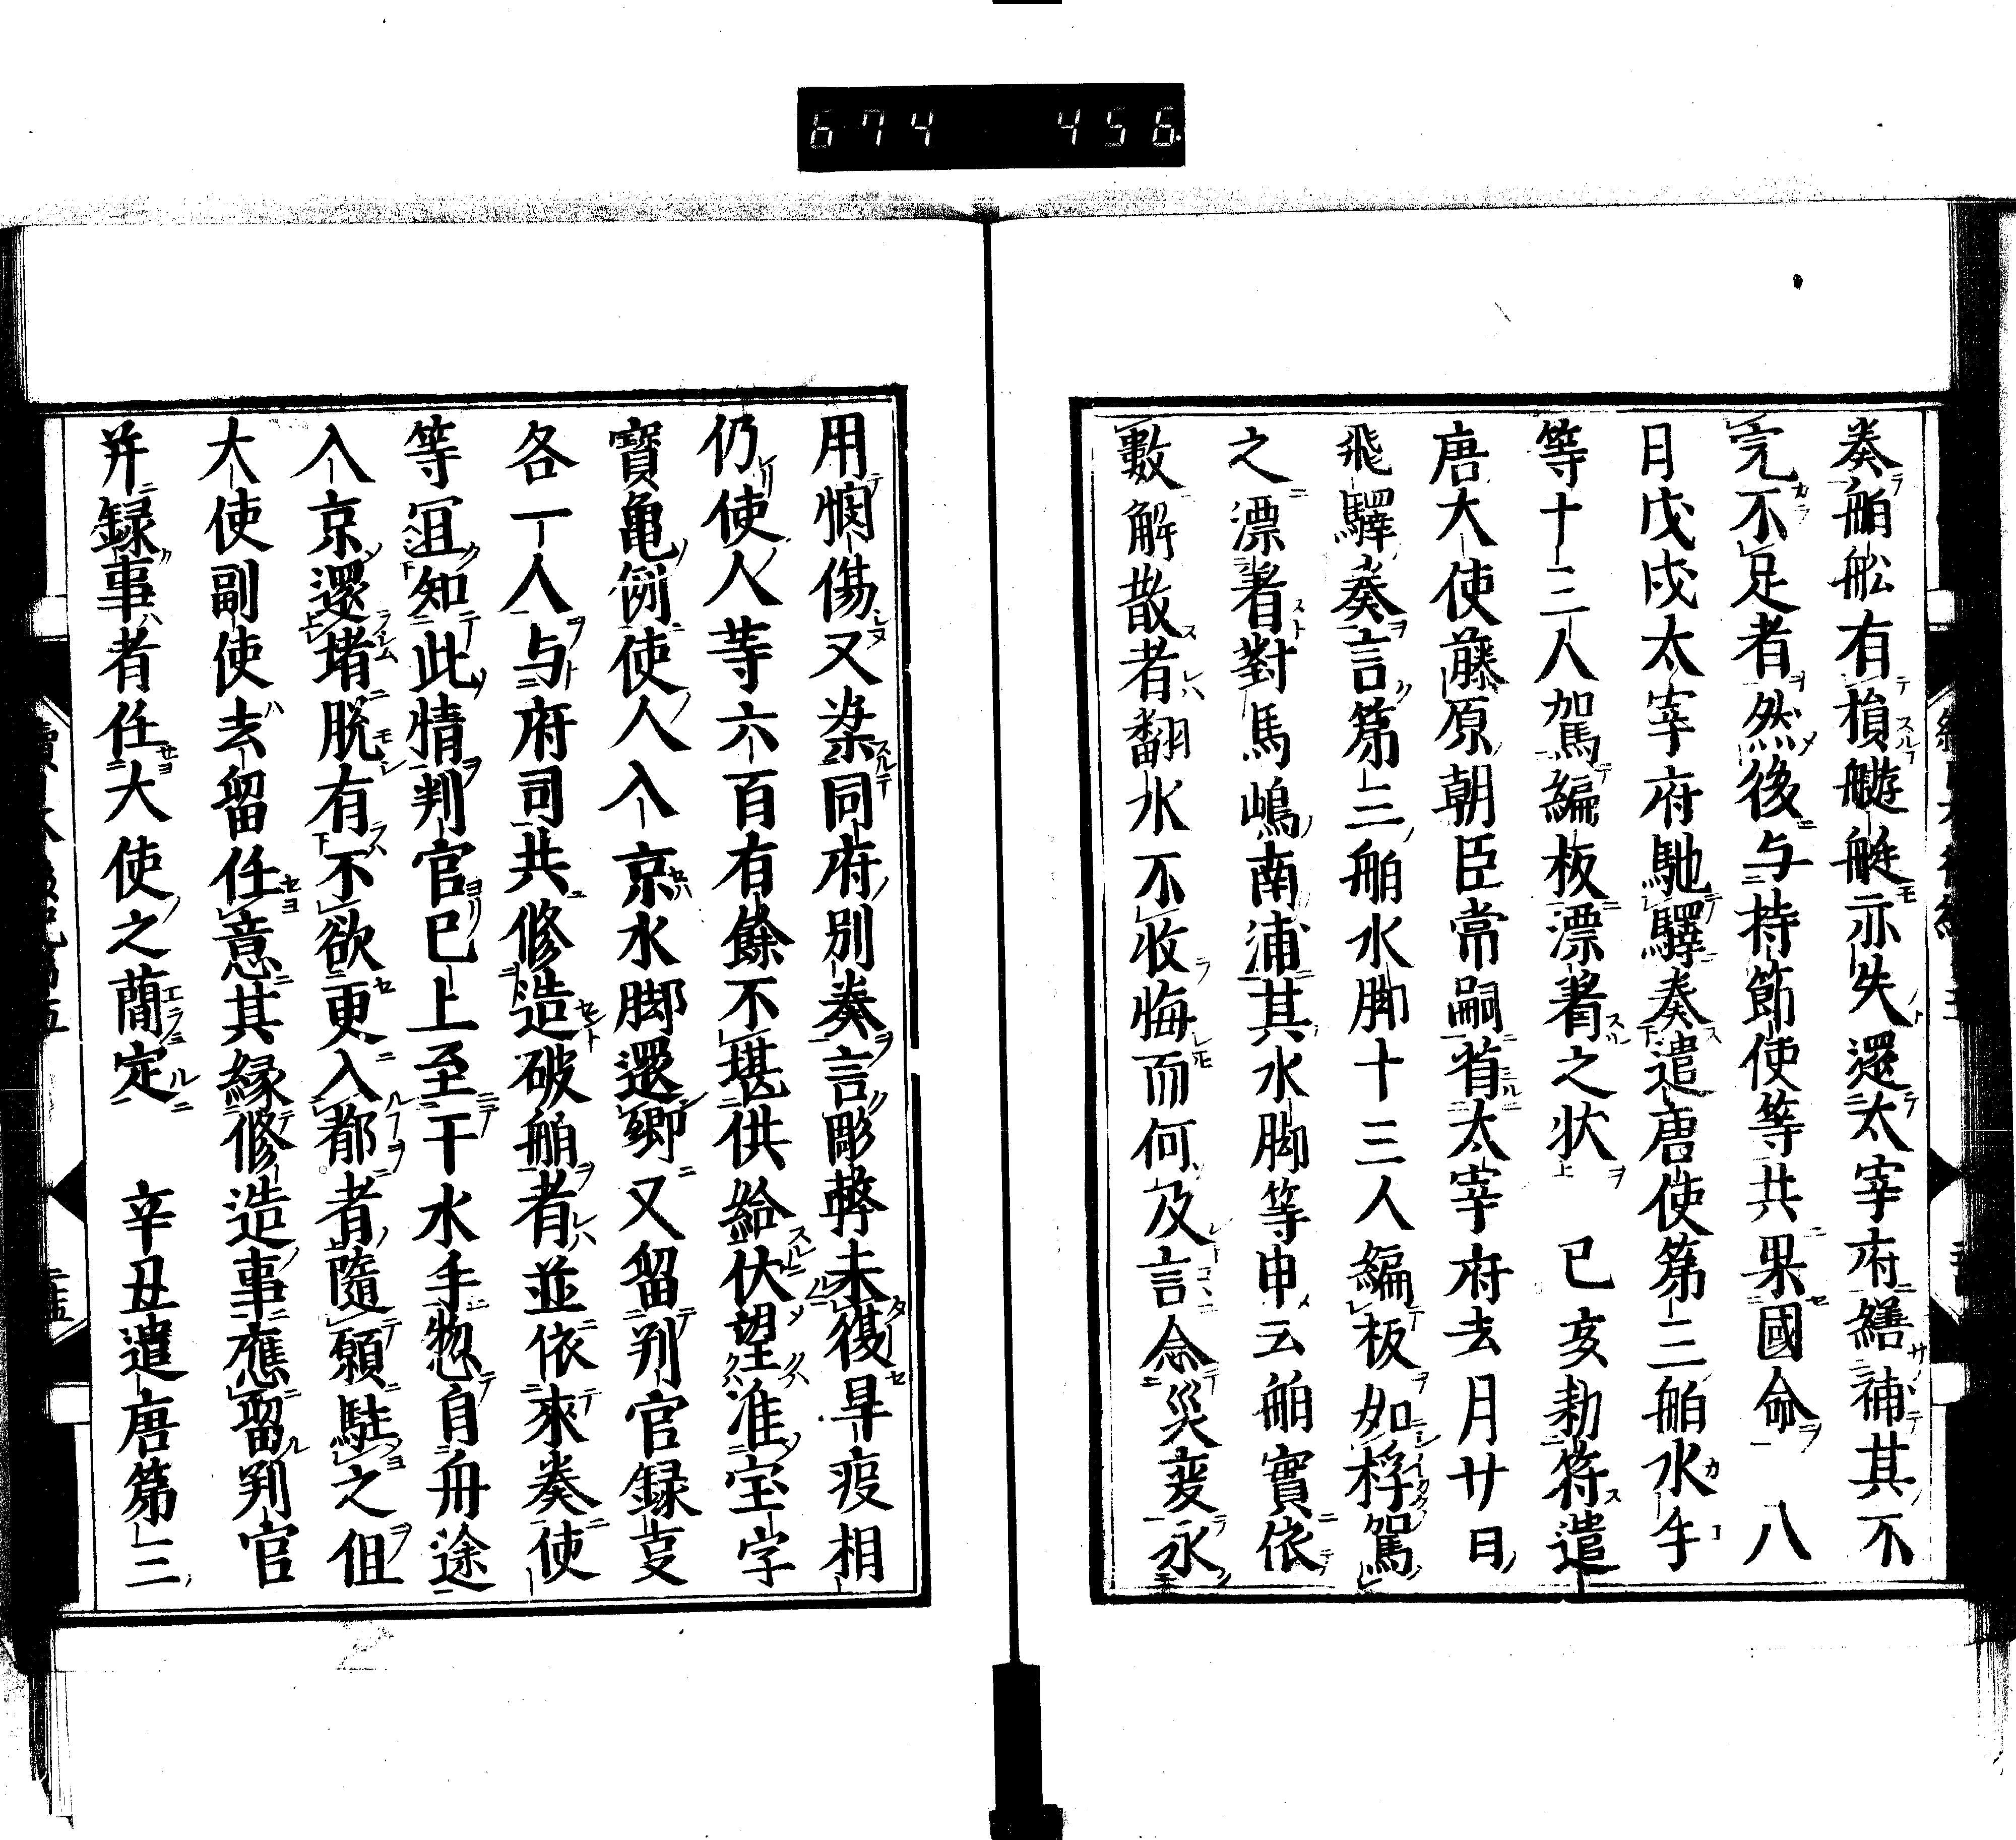 674 456
奏舶舩有損艥艇亦失還太宰府繕補其不
完不足者然後与持節使等共果國命 八
月戊戌太宰府馳驛奏遣唐使第三舶水手
等十三人駕編板漂着之状 己亥勅符遣
唐大使藤原朝臣常嗣省太宰府去月廿日
飛驛奏言第三舶水脚十三人編板如桴駕
之漂着對馬嶋南浦其水脚等申云舶實依
數解散者翻水不收悔而何及言念災変永
用憫傷又染同府別奏言彫弊未復旱疫相
仍使人等六百有餘不堪供給伏望准宝字
寳亀例使人入京水脚還郷又留判官録事
各一人与府司共修造破舶者並依來奏使
等冝知此情判官已上至于水手惣自舟途
入京還堵脱有不欲更入都者隨願駐之但
大使副使去留任意其縁修造事應留判官
并録事者任大使之蕑定 辛丑遣唐第三